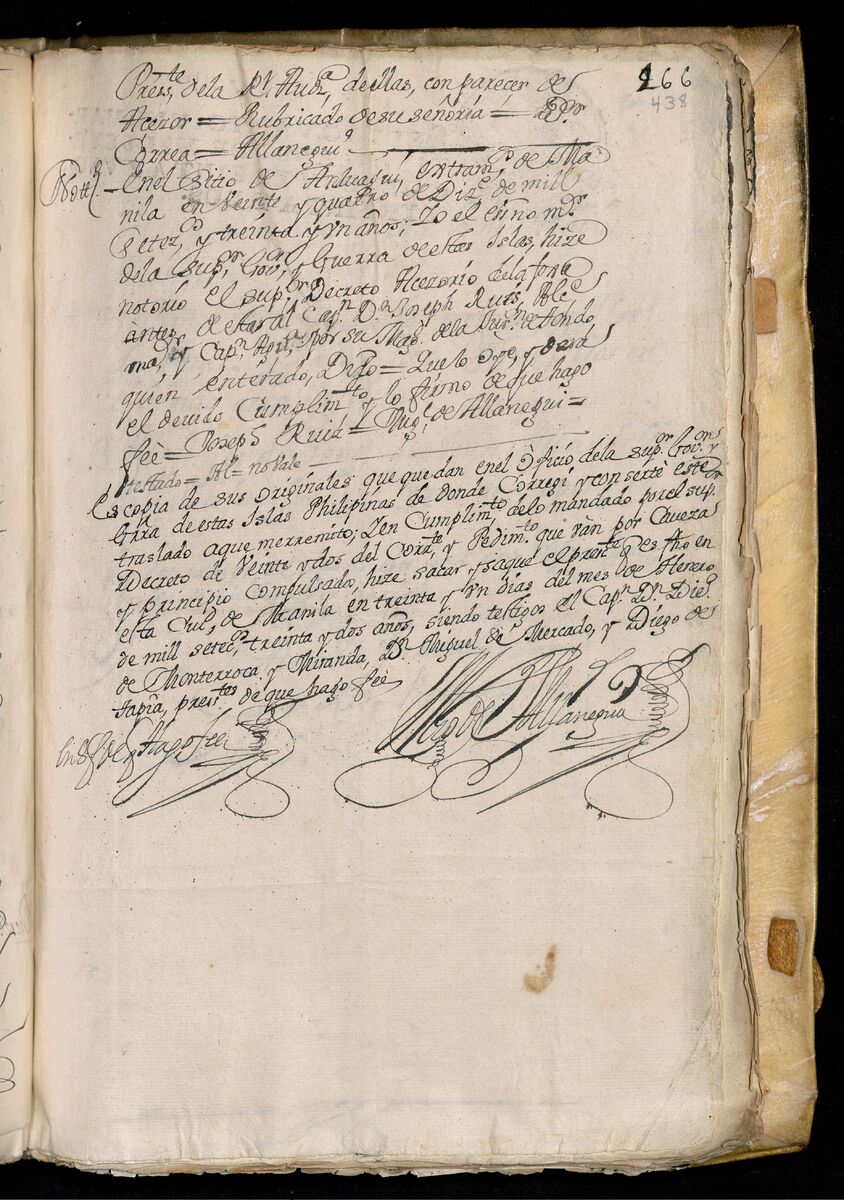 266
438
Press.te dela Rl. Aud.a de ellas, con parecer de
Acezor = Rubricado de su señoria = D.or
Correa = Allanegui =
Nott.n
En el Sitio de extram.s de Ma
nila en Veinte y quatro de Diz.e de mill
Setez.os y treinta y Un años; Yo el essno m.or
dela Sup.or Gov.on y Guerra de estas Islas, hize
notorio el sup.or Decreto Acezorio dela foxa
antes de esta al Cap.n D.n Joseph Ruis, Alc.e
m.or y Cap.n por su Mag. de la Jur.on de Tondo
quien enterado, Dijo = Que lo Oye, y dará
el devido Cumplim.to y lo firmo de que hago
feè = Joseph Ruid = Mig.l de Allanegui =
testado = Al = no Vale
Es copia de sus Originales que quedan en el Oficio dela sup.or Gov.on y
Grra de estas Islas Philipinas de donde Corregi y consertè este
traslado a que me rremito; Y en Cumplim.to delo mandado por el sup.or
Decreto de Veinte y dos del Corr.te, y Pedim.to que ván por Caveza
y principio Compulsado, hize sacar y saque el pres.te q es fho en
esta Ciu.d de Manila en treinta y Un dias del mes de Henero
de mill setec.os treinta y dos años, siendo testigos el Cap.n D.n Die.o
de Monterroca y Miranda, D.n Miguel de Mercado, y Diego de
tapia, press.tes de que hago feè
hago feè
Mig.l de Allanegui